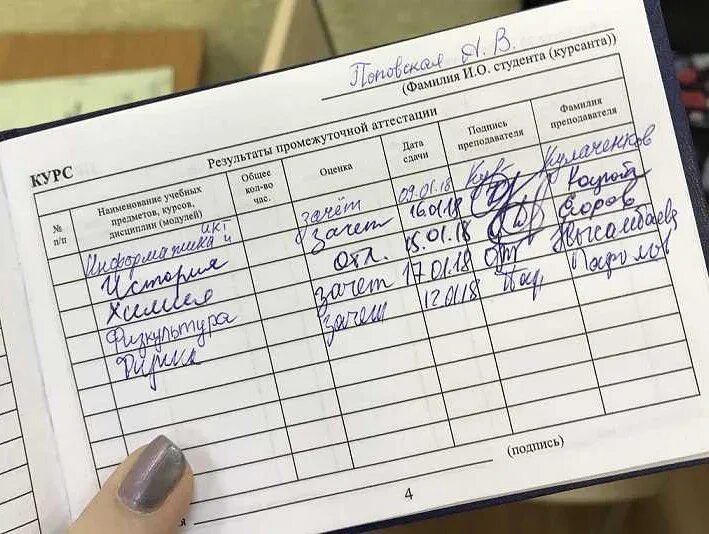 Поповская А. В.
(Фамилия И.О. студента (курсанта))
КУРС
Результаты промежуточной аттестации
№ п/п
Наименование учебных предметов, курсов, дисциплин (модулей)
Общее кол-во час.
Оценка
Дата сдачи
Подпись преподавателя
Фамилия преподавателя
Информатика и ИКТ зачёт 09.01.18 Кул Кулаченков
История зачет 16.01.18
Химия отл. 15.01.18 Егоров
Физкультура зачет 17.01.18
Физика зачет 12.01.18
(подпись)
4